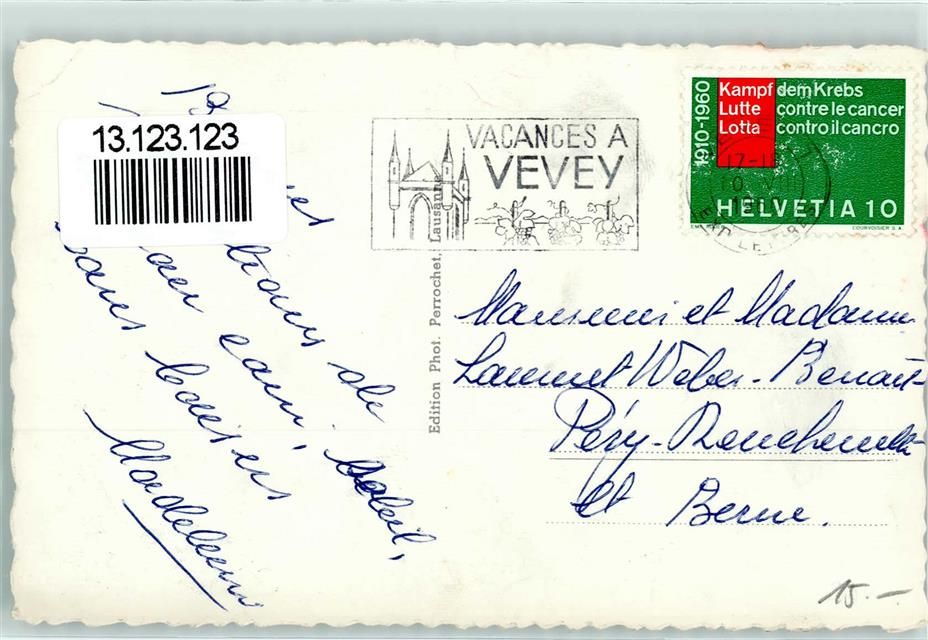 13.123.123
de
eau, soleil,
bons baisers
Madeleine
Edition Phot. Perrochet, Lausanne
VACANCES A
VEVEY
1910-1960
Kampf dem Krebs
Lutte contre le cancer
Lotta contro il cancro
HELVETIA 10
COURVOISIER S.A.
17-18
Monsieur et Madame
Laurent Weber-Benoit
Péry-Reuchenette
Ct Berne.
15.-